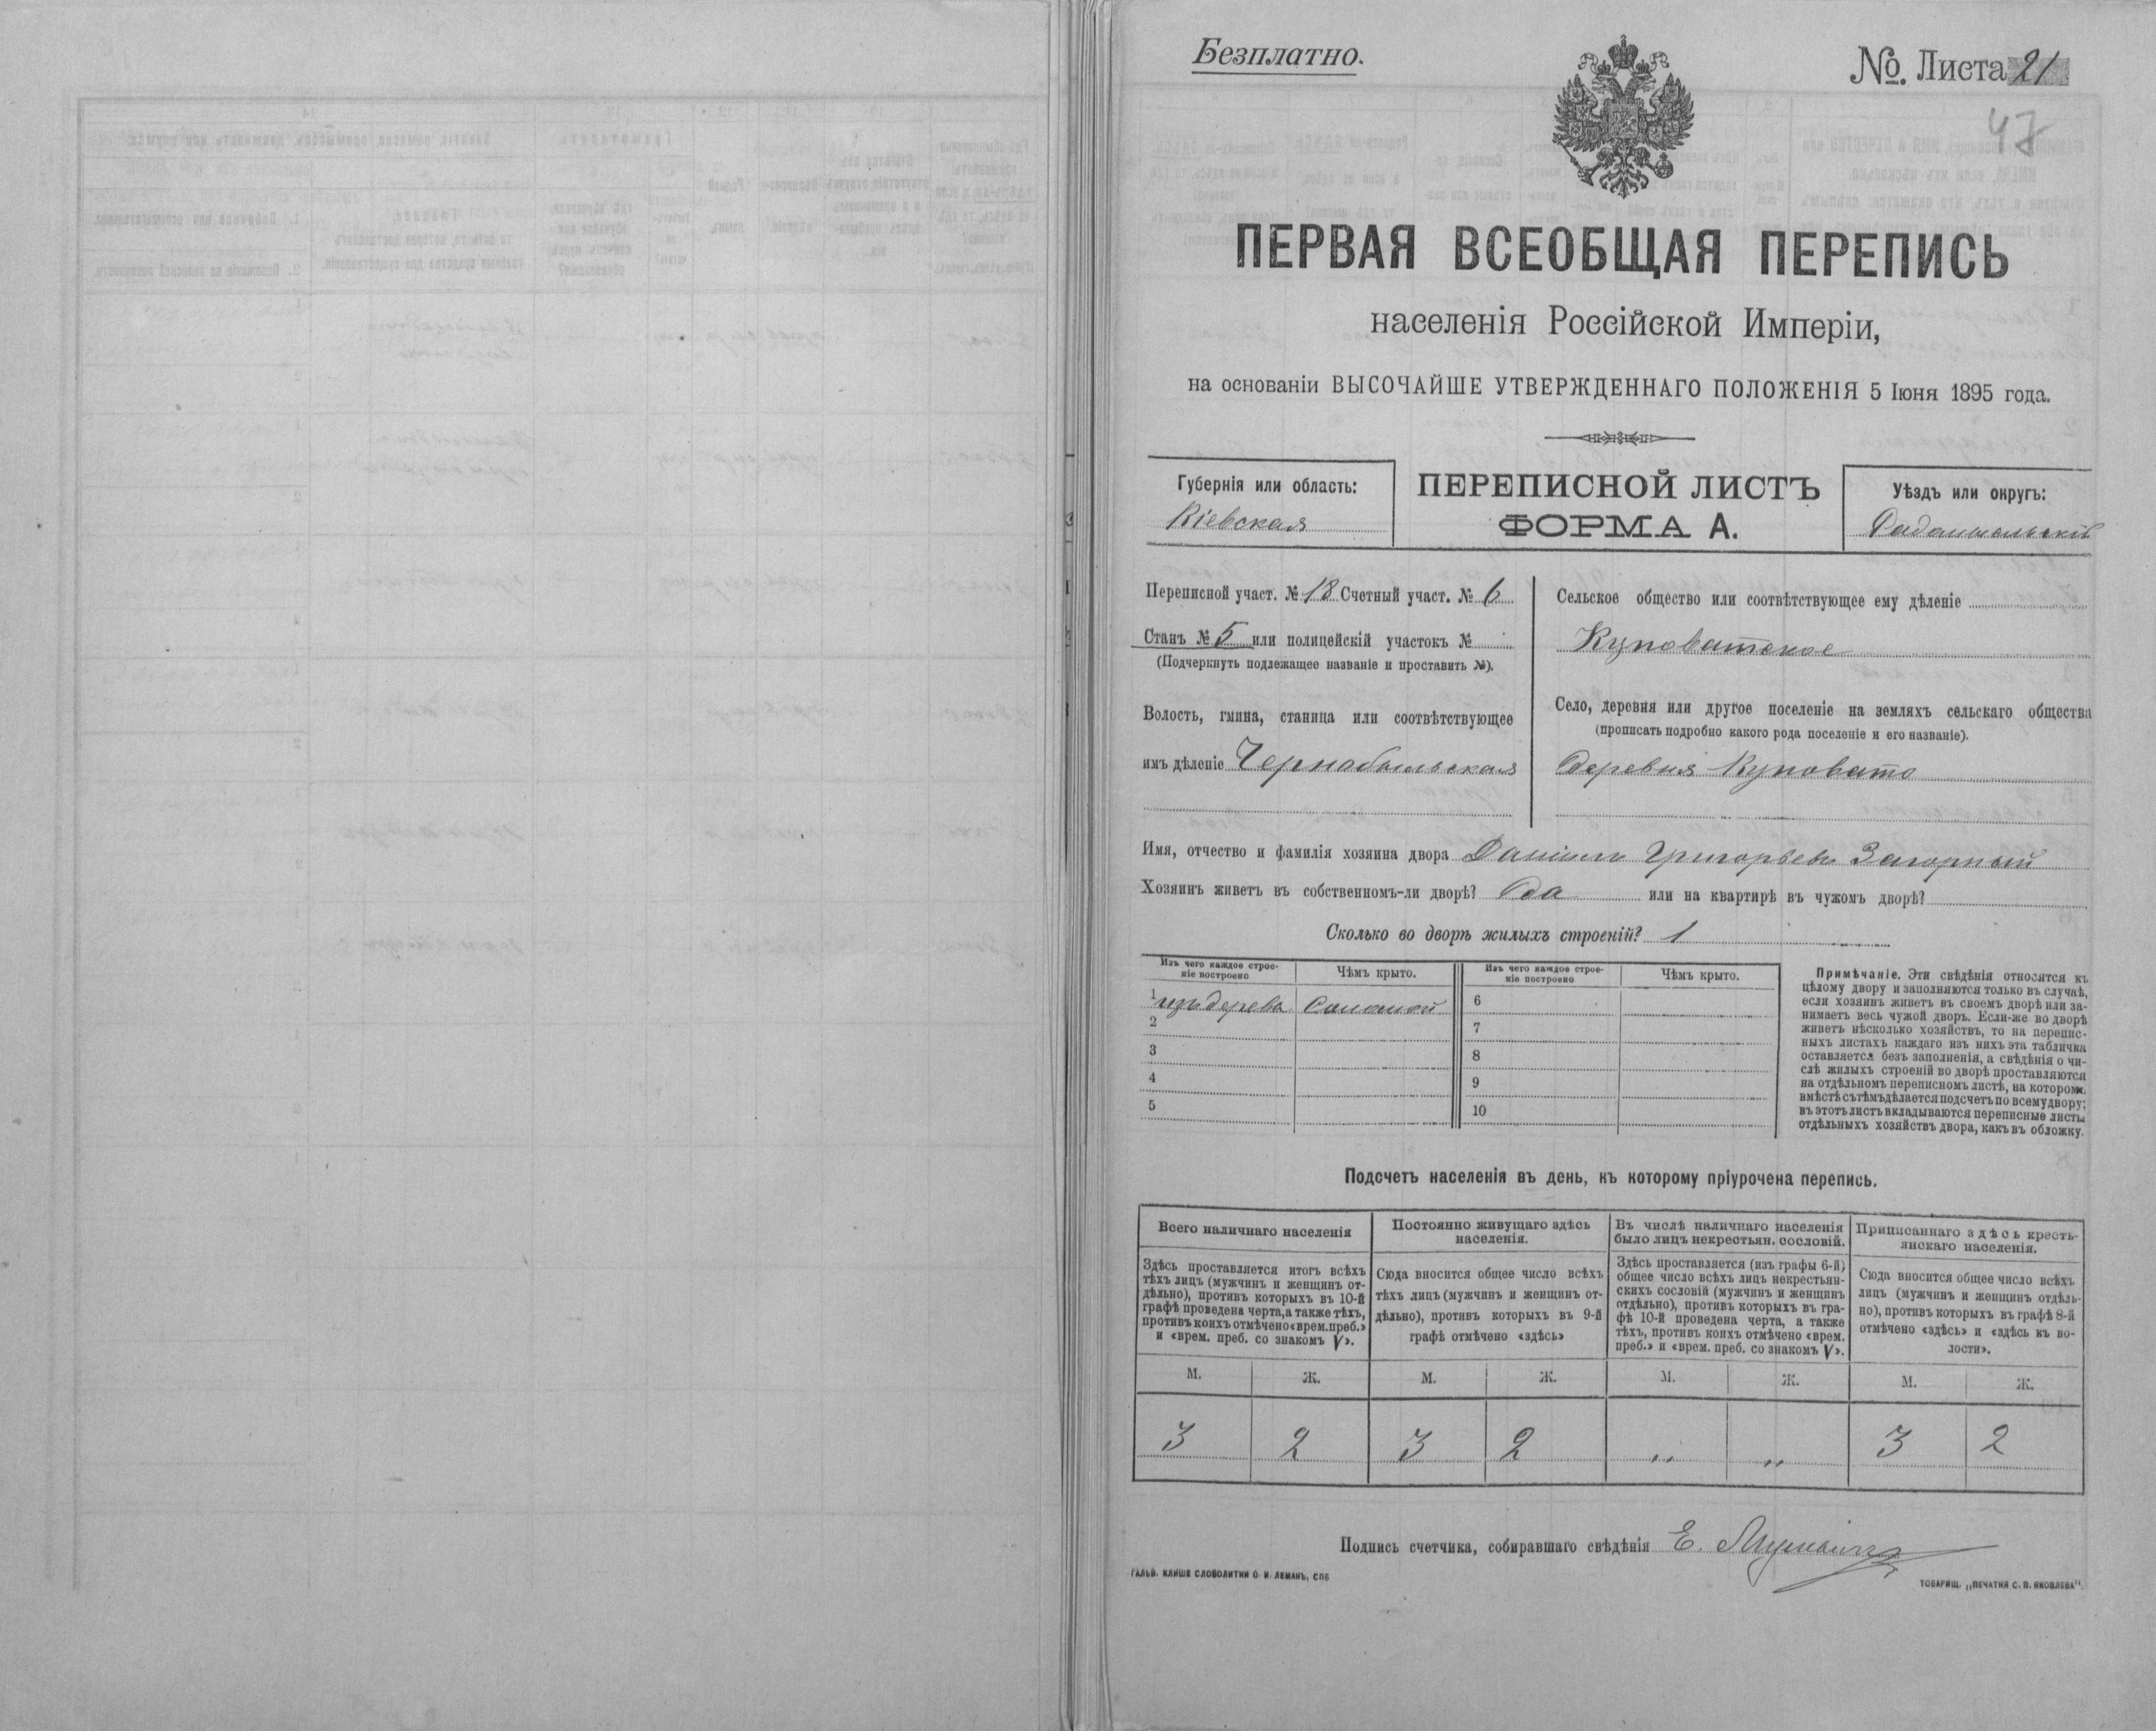 Безплатно.
№. Листа 21
47
ПЕРВАЯ ВСЕОБЩАЯ ПЕРЕПИСЬ
населенія Россійской Имперіи,
на основаніи ВЫСОЧАЙШЕ УТВЕРЖДЕННАГО ПОЛОЖЕНІЯ 5 Іюня 1895 года.
Губернія или область:
Кіевская
ПЕРЕПИСНОЙ ЛИСТЪ
ФОРМА А.
Уѣздъ или округъ:
Радомысльскій
Переписной участ. № 18 Счетный участ. № 6
Станъ № 5 или полицейскій участокъ №
(Подчеркнуть подлежащее названіе и проставить №).
Волость, гмина, станица или соотвѣтствующее
имъ дѣленіе Чернобыльская
Сельское общество или соотвѣтствующее ему дѣленіе
Куповатское
Село, деревня или другое поселеніе на земляхъ сельскаго общества
(прописать подробно какого рода поселеніе и его названіе).
Деревня Куповато
Имя, отчество и фамилія хозяина двора Даніилъ Григорьевъ Загорный
Хозяинъ живетъ въ собственномъ-ли дворѣ? Да или на квартирѣ въ чужомъ дворѣ?
Сколько во дворѣ жилыхъ строеній? 1
Изъ чего каждое строе-
ніе построено
Чѣмъ крыто.
Изъ чего каждое строе-
ніе построено
Чѣмъ крыто.
1 изъ дерева Соломой 6
2 7
3 8
4 9
5 10
Примѣчаніе. Эти свѣдѣнія относятся къ
цѣлому двору и заполняются только въ случаѣ,
если хозяинъ живетъ въ своемъ дворѣ или за-
нимаетъ весь чужой дворъ. Если-же во дворѣ
живетъ нѣсколько хозяйствъ, то на перепис-
ныхъ листахъ каждаго изъ нихъ эта табличка
оставляется безъ заполненія, а свѣдѣнія о чи-
слѣ жилыхъ строеній во дворѣ проставляются
на отдѣльномъ переписномъ листѣ, на которомъ
вмѣстѣ съ тѣмъ дѣлается подсчетъ по всему двору;
въ этотъ листъ вкладываются переписные листы
отдѣльныхъ хозяйствъ двора, какъ въ обложку.
Подсчетъ населенія въ день, къ которому пріурочена перепись.
Всего наличнаго населенія
Здѣсь проставляется итогъ всѣхъ
тѣхъ лицъ (мужчинъ и женщинъ от-
дѣльно), противъ которыхъ въ 10-й
графѣ проведена черта, а также тѣхъ,
противъ коихъ отмѣчено «врем. преб.»
и «врем. преб. со знакомъ V».
Постоянно живущаго здѣсь
населенія.
Сюда вносится общее число всѣхъ
тѣхъ лицъ (мужчинъ и женщинъ от-
дѣльно), противъ которыхъ въ 9-й
графѣ отмѣчено «здѣсь»
Въ числѣ наличнаго населенія
было лицъ некрестьян. сословій.
Здѣсь проставляется (изъ графы 6-й)
общее число всѣхъ лицъ некрестьян-
скихъ сословій (мужчинъ и женщинъ
отдѣльно), противъ которыхъ въ гра-
фѣ 10-й проведена черта, а также
тѣхъ, противъ коихъ отмѣчено «врем.
преб.» и «врем. преб. со знакомъ V».
Приписаннаго здѣсь кресть-
янскаго населенія.
Сюда вносится общее число всѣхъ
лицъ (мужчинъ и женщинъ отдѣль-
но), противъ которыхъ въ графѣ 8-й
отмѣчено «здѣсь» и «здѣсь къ во-
лости».
М. Ж. М. Ж. М. Ж. М. Ж.
3 2 3 2 „ „ 3 2
Подпись счетчика, собиравшаго свѣдѣнія Е.
ГАЛЬВ. КЛИШЕ СЛОВОЛИТНИ О. И. ЛЕМАНЪ, СПБ
ТОВАРИЩ. „ПЕЧАТНЯ С. П. ЯКОВЛЕВА".